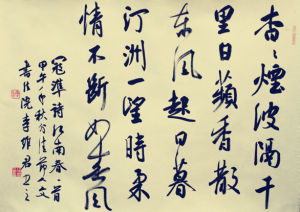 杳〻煙波隔千
里白蘋香散
東風起日暮
汀洲一望時柔
情不斷如春水
寇準詩江南春一首
甲午年中秋佳節
書法院李